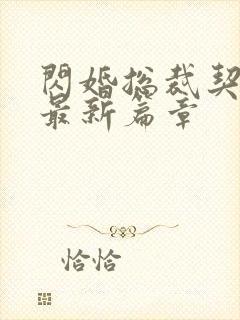 閃婚總裁契
最新篇章
恰恰